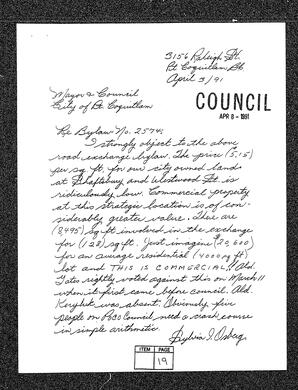 3156 Raleigh St.
Pt Coquitlam Bc
April 3/91
Mayor & Council
City of Pt. Coquitlam
COUNCIL
APR 8 - 1991
Re Bylaw No. 2574:
I strongly object to the above
road exchange bylaw. The price (5.15)
per sq ft. for our city owned lands
at Shaftsbury and Westwood St. is
ridiculously low. Commercial property
at this strategic location is of con-
siderably greater value. There are
(2,495) sq ft involved in the exchange
for (128) sq ft. Just imagine (20,600)
for an average residential (4000 sq ft)
lot and THIS IS COMMERCIAL!! Ald.
Gates rightly voted against this on March 11
when it first came before council. Ald
was absent. Obviously, five
people on PoCo Council need a crash course
in simple arithmetic.
Sylvia I.
ITEM PAGE
19